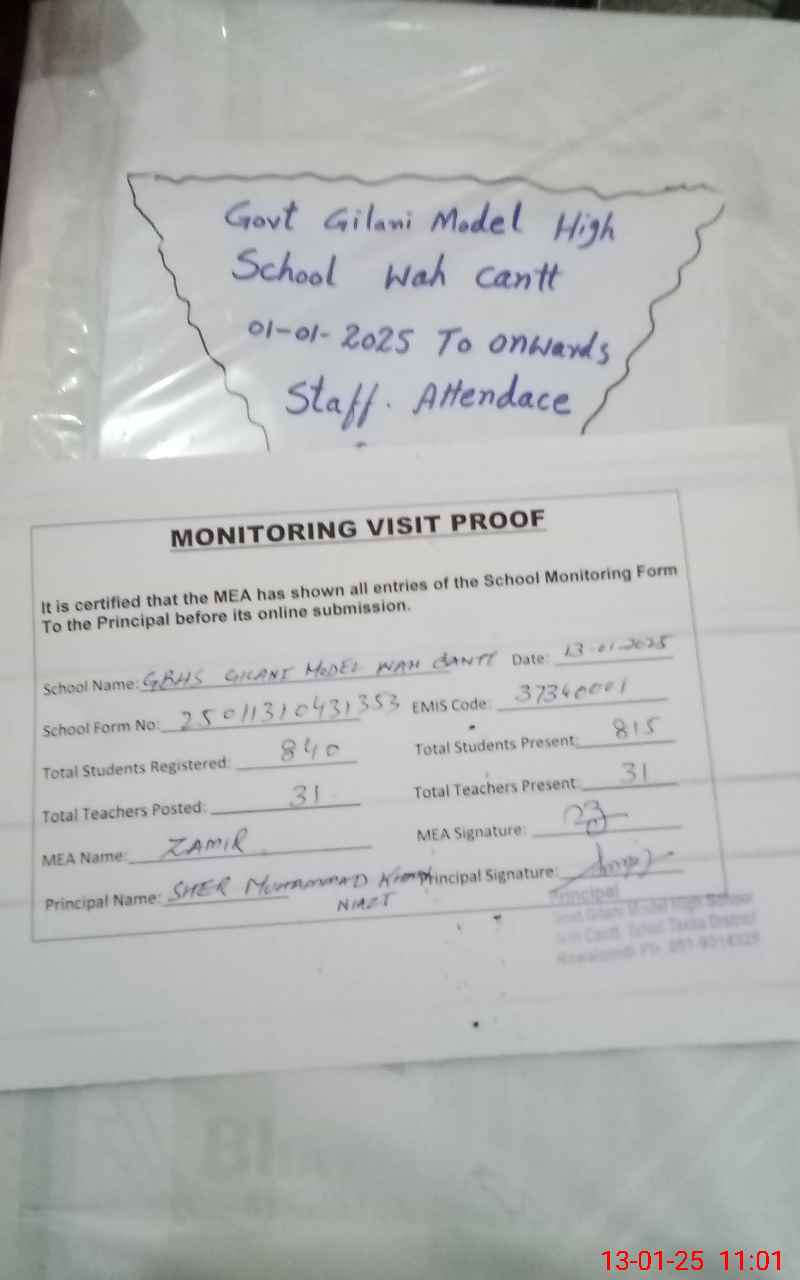 Govt Gilani Model High
School Wah Cantt
01-01-2025 To onwards
Staff. Attendace
MONITORING VISIT PROOF
It is certified that the MEA has shown all entries of the School Monitoring Form
To the Principal before its online submission.
School Name: GBHS GILANI MODEL WAH CANTT Date: 13-01-2025
School Form No: 25011310431353 EMIS Code: 37340001
Total Students Registered: 840 Total Students Present: 815
Total Teachers Posted: 31 Total Teachers Present: 31
MEA Name: ZAMIR MEA Signature:
Principal Name: SHER MUHAMMAD Principal Signature:
NIAZI
Principal
Govt Gilani Model High School
Wah Cantt. Tehsil Taxila District
Rawalpindi
13-01-25 11:01